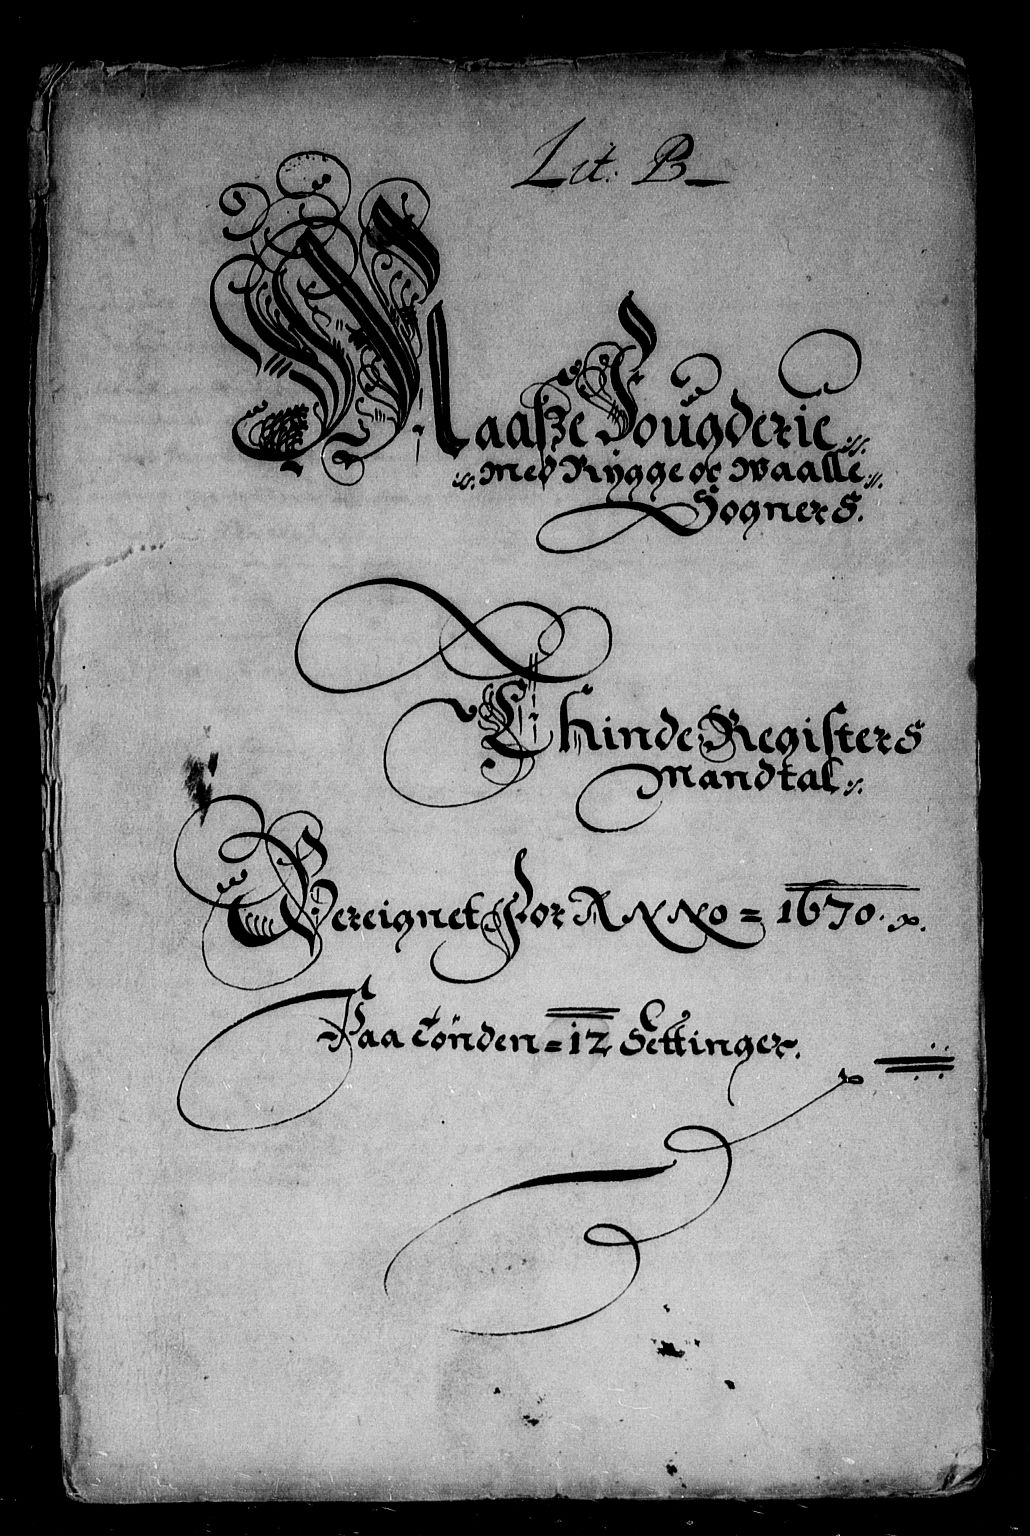 Lit: B
Maasze Fougderie
Med Rygge oc Waalle
Sogners.
Thinde Registers
Mandtal
Bereignet For Anno = 1670.
Paa Tönden = 12 Settinger.